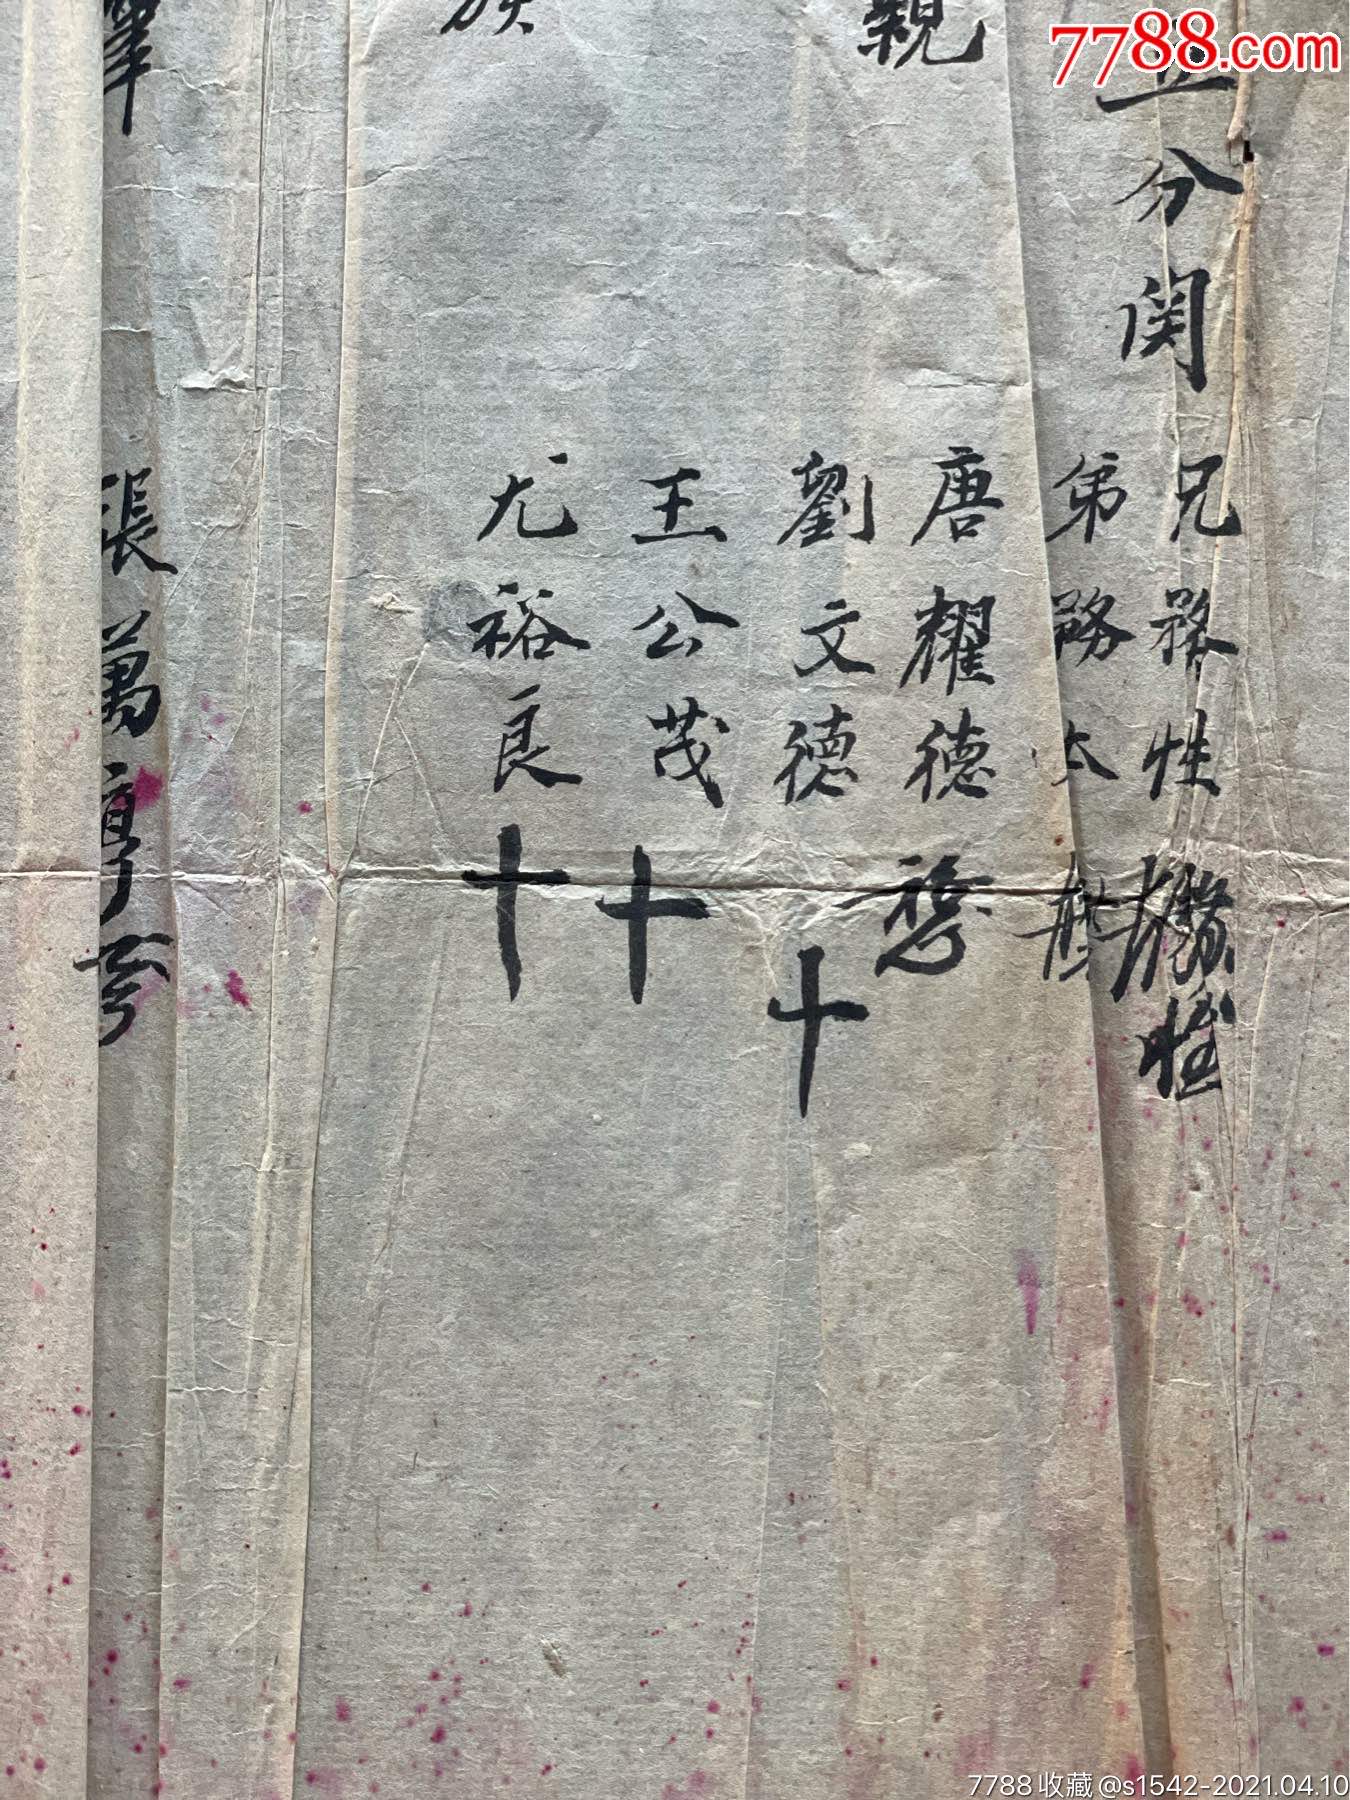 7788.com
立分関
兄務性
弟務本
親
唐耀德
劉文德 十
王公茂 十
族
尤裕良 十
張萬亨
7788收藏@s1542-2021.04.10